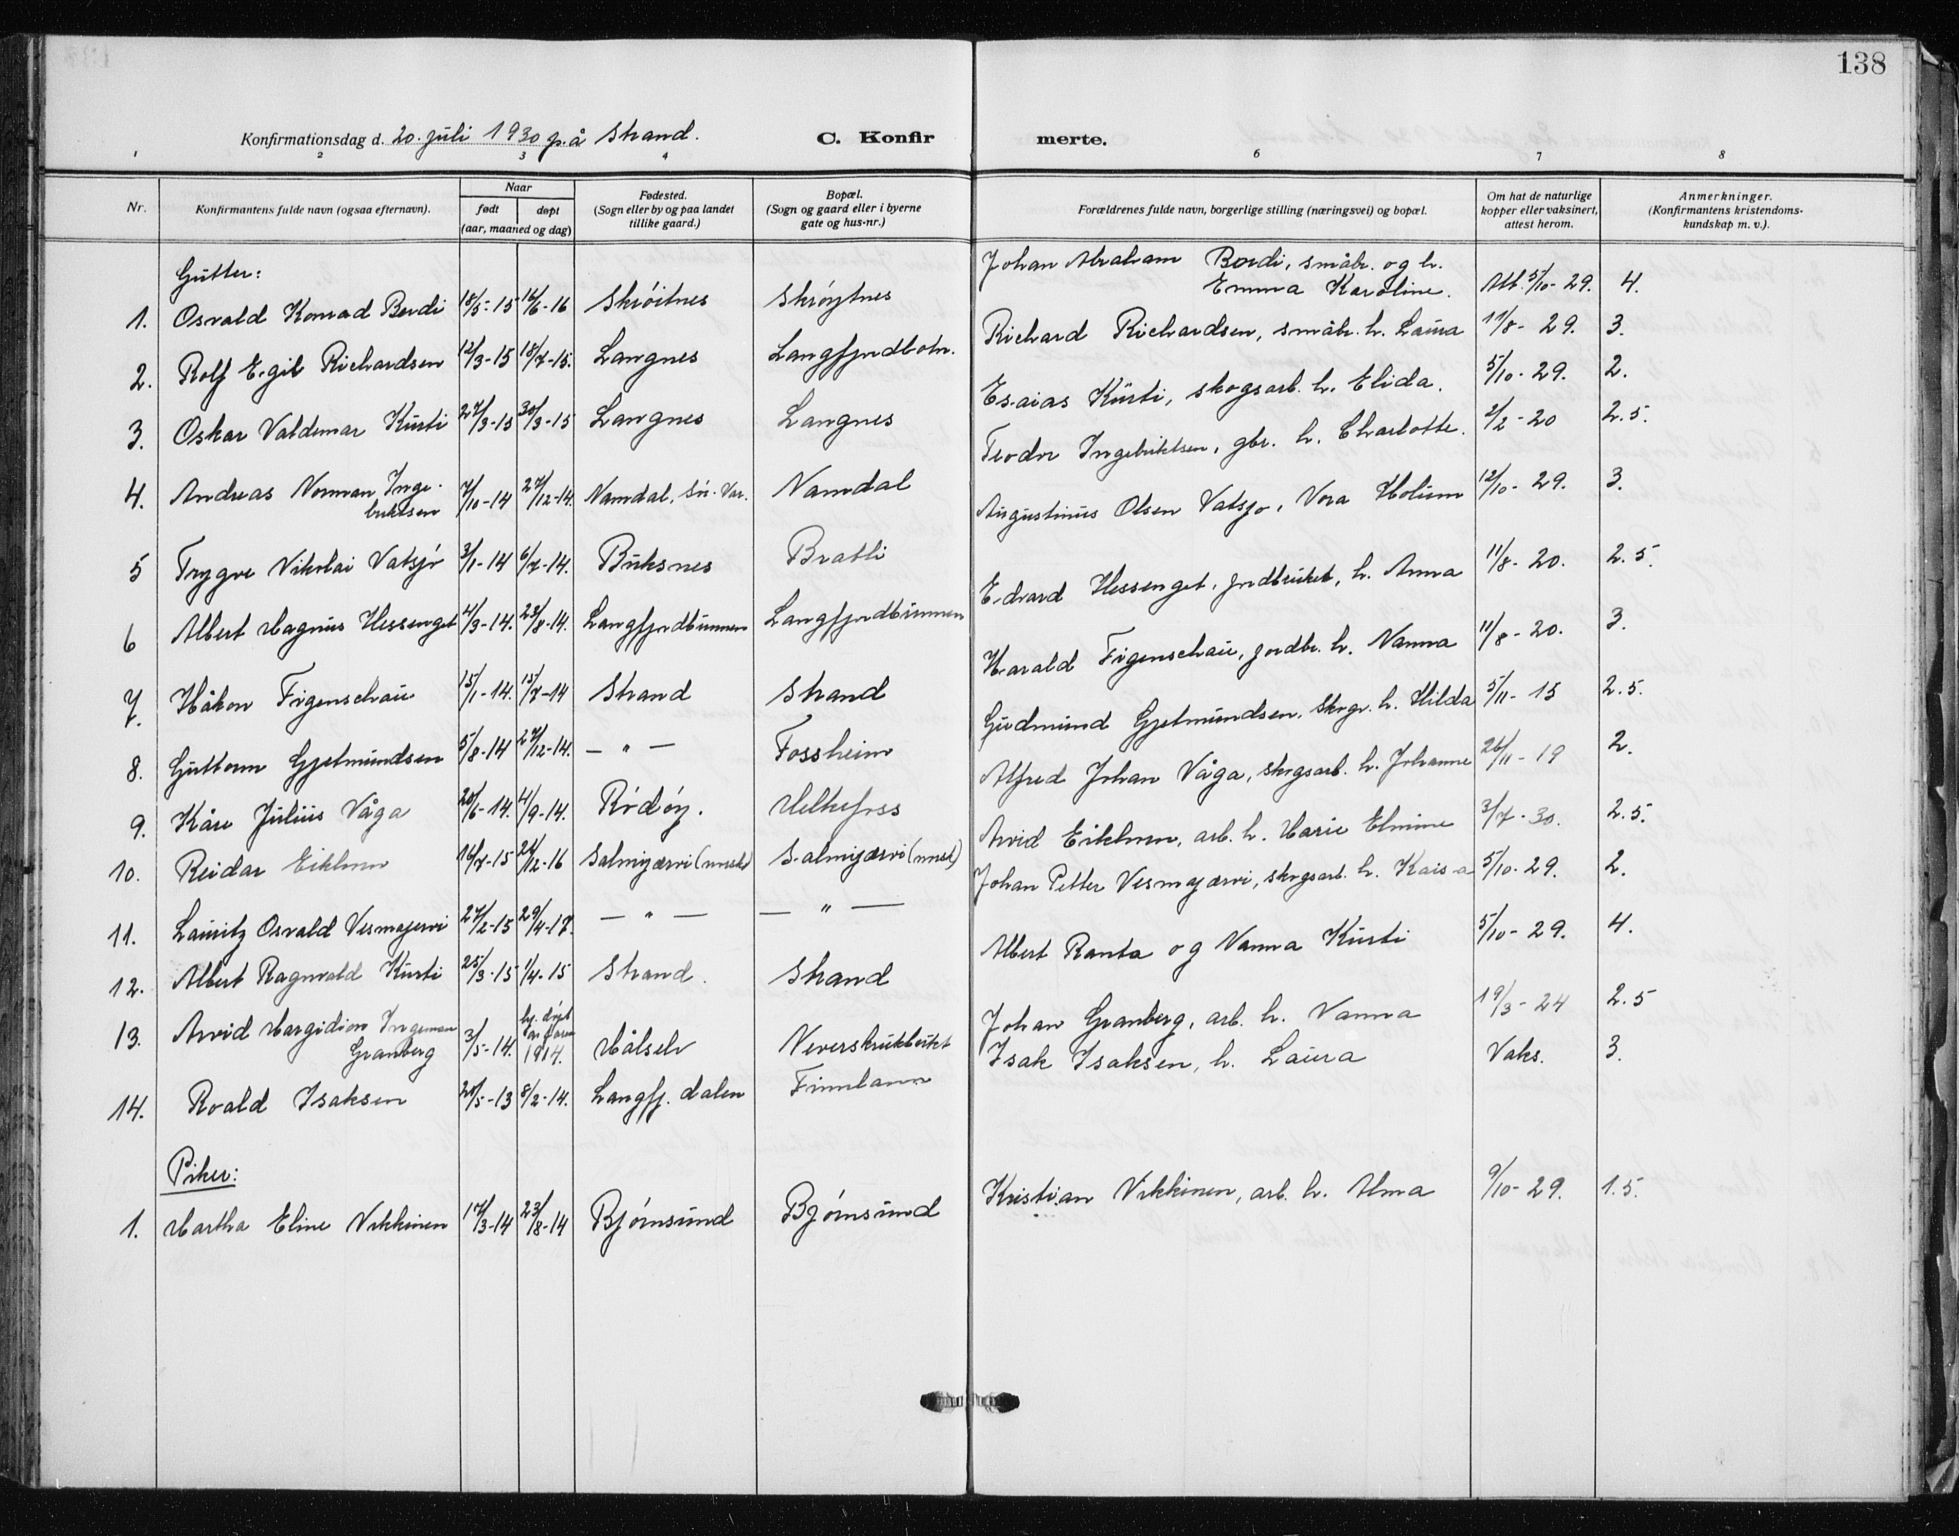 138
Konfirmationsdag d. 20. juli 1930 på Strand. C. Konfirmerte.
1 2 3 4 6 7 8
Nr. Konfirmantens fulde navn (ogsaa efternavn). Naar født døpt (aar, maaned og dag) Fødested. (Sogn eller by og paa landet tillike gaard.) Bopæl. (Sogn og gaard eller i byerne gate og hus-nr.) Forældrenes fulde navn, borgerlige stilling (næringsvei) og bopæl. Om hat de naturlige kopper eller vaksinert, attest herom. Anmerkninger. (Konfirmantens kristendoms-kundskap m. v.).
Gutter:
1. Osvald Konrad Bordi 18/5-15 16/6-16 Skrøitnes Skrøytnes Johan Abraham Bordi, småbr. og h. Emma Karoline. Att. 5/10-29. 4.
2. Rolf Egil Richardsen 12/3-15 18/7-15. Langnes Langfjordbotn. Richard Richardsen, småbr. h. Laura 11/8-29. 3.
3. Oskar Valdemar Kurti 27/3-15 30/3-15 Langnes Langnes Esaias Kurti, skogsarb. h. Elida. 5/10-29. 2.
4. Andreas Norman Ingebriktsen 7/10-14 27/12-14. Namdal, Sør-Var. Namdal Teodor Ingebriktsen, gbr. h. Charlotte. 2/2-20 2.5.
5 Trygve Nikolai Vatsjø 3/1-14 6/7-14. Buksnes Bratli Augustinus Olsen Vatsjø, Vora Holum 12/10-29. 3.
6 Albert Magnus Hessenget 4/3-14. 23/8-14. Langfjordbunnen Langfjordbunnen Edvard Hessenget, jordbruket, h. Anna 11/8-20. 2.5
7. Håkon Figenschau 15/1-14. 15/7-14 Strand Strand Harald Figenschau, jordbr. h. Nanna 11/8-20. 3.
8. Guttorm Gjetmundsen 5/8-14 27/12-14. — " — Fossheim Gudmund Gjetmundsen, skogv. h. Hilda 5/11-15 2.5.
9. Kåre Julius Våga 20/6-14. 4/9-14. Rødøy. Melkefoss Alfred Johan Våga, skogsarb. h. Johanne 26/11-19 2.
10. Reidar Eikhorn 16/7-15 24/12-16 Salmijærvi (norsk) Salmijærvi (norsk) Arvid Eikhorn, arb. h. Marie Elmine 3/7-30. 2.5.
11. Lauritz Osvald Vesmajervi 27/2-15 29/4-17. — " — — " — Johan Petter Vesmajærvi, skogsarb. h. Kaisa 5/10-29. 2.
12. Albert Ragnvald Kurti 25/3-15 1/4-15 Strand. Strand Albert Ranta og Nanna Kurti 5/10-29. 4.
13. Arvid Margidion Ingeman Granberg 3/5-14. 1914. Målselv Neverskrukbukt Johan Granberg, arb. h. Nanna 19/3-24 2.5
14. Roald Isaksen 20/5-13 8/2-14. Langfj. dalen Finnlann Isak Isaksen, h. Laura Vaks. 3.
Piker:
1. Martha Eline Vikkinen 17/3-14 23/8-14 Bjørnsund Bjørnsund Kristian Vikkinen, arb. h. Alma 9/10-29. 1.5.